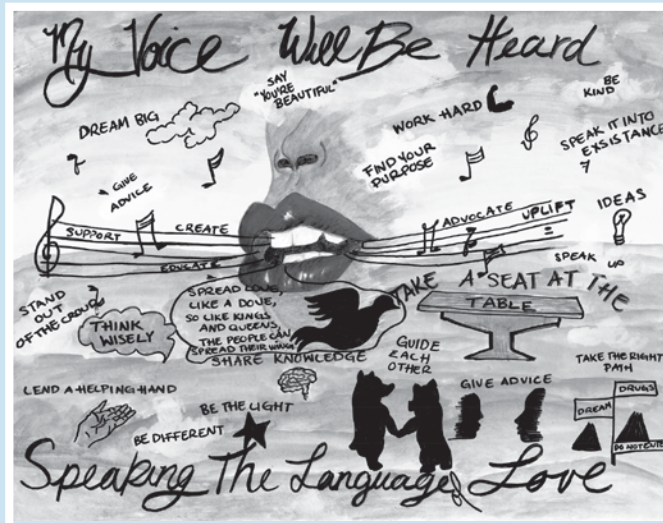 My Voice Will Be Heard
SAY
"YOU'RE
BEAUTIFUL"
BE
KIND
DREAM BIG
WORK HARD
SPEAK IT INTO
EXSISTANCE
FIND YOUR
PURPOSE
GIVE
ADVICE
SUPPORT
CREATE
EDUCATE
ADVOCATE
UPLIFT
IDEAS
SPEAK UP
STAND
OUT
OF THE CROUD
THINK
WISELY
SPREAD LOVE,
LIKE A DOVE,
SO LIKE KINGS
AND QUEENS,
THE PEOPLE CAN
SPREAD THEIR WINGS
SHARE KNOWLEDGE
TAKE A SEAT AT THE
TABLE
GUIDE
EACH
OTHER
TAKE THE RIGHT
PATH
LEND A HELPING HAND
BE THE LIGHT
BE DIFFERENT
GIVE ADVICE
DREAM
DRUGS
DO NOT ENTER
Speaking The Language Of Love